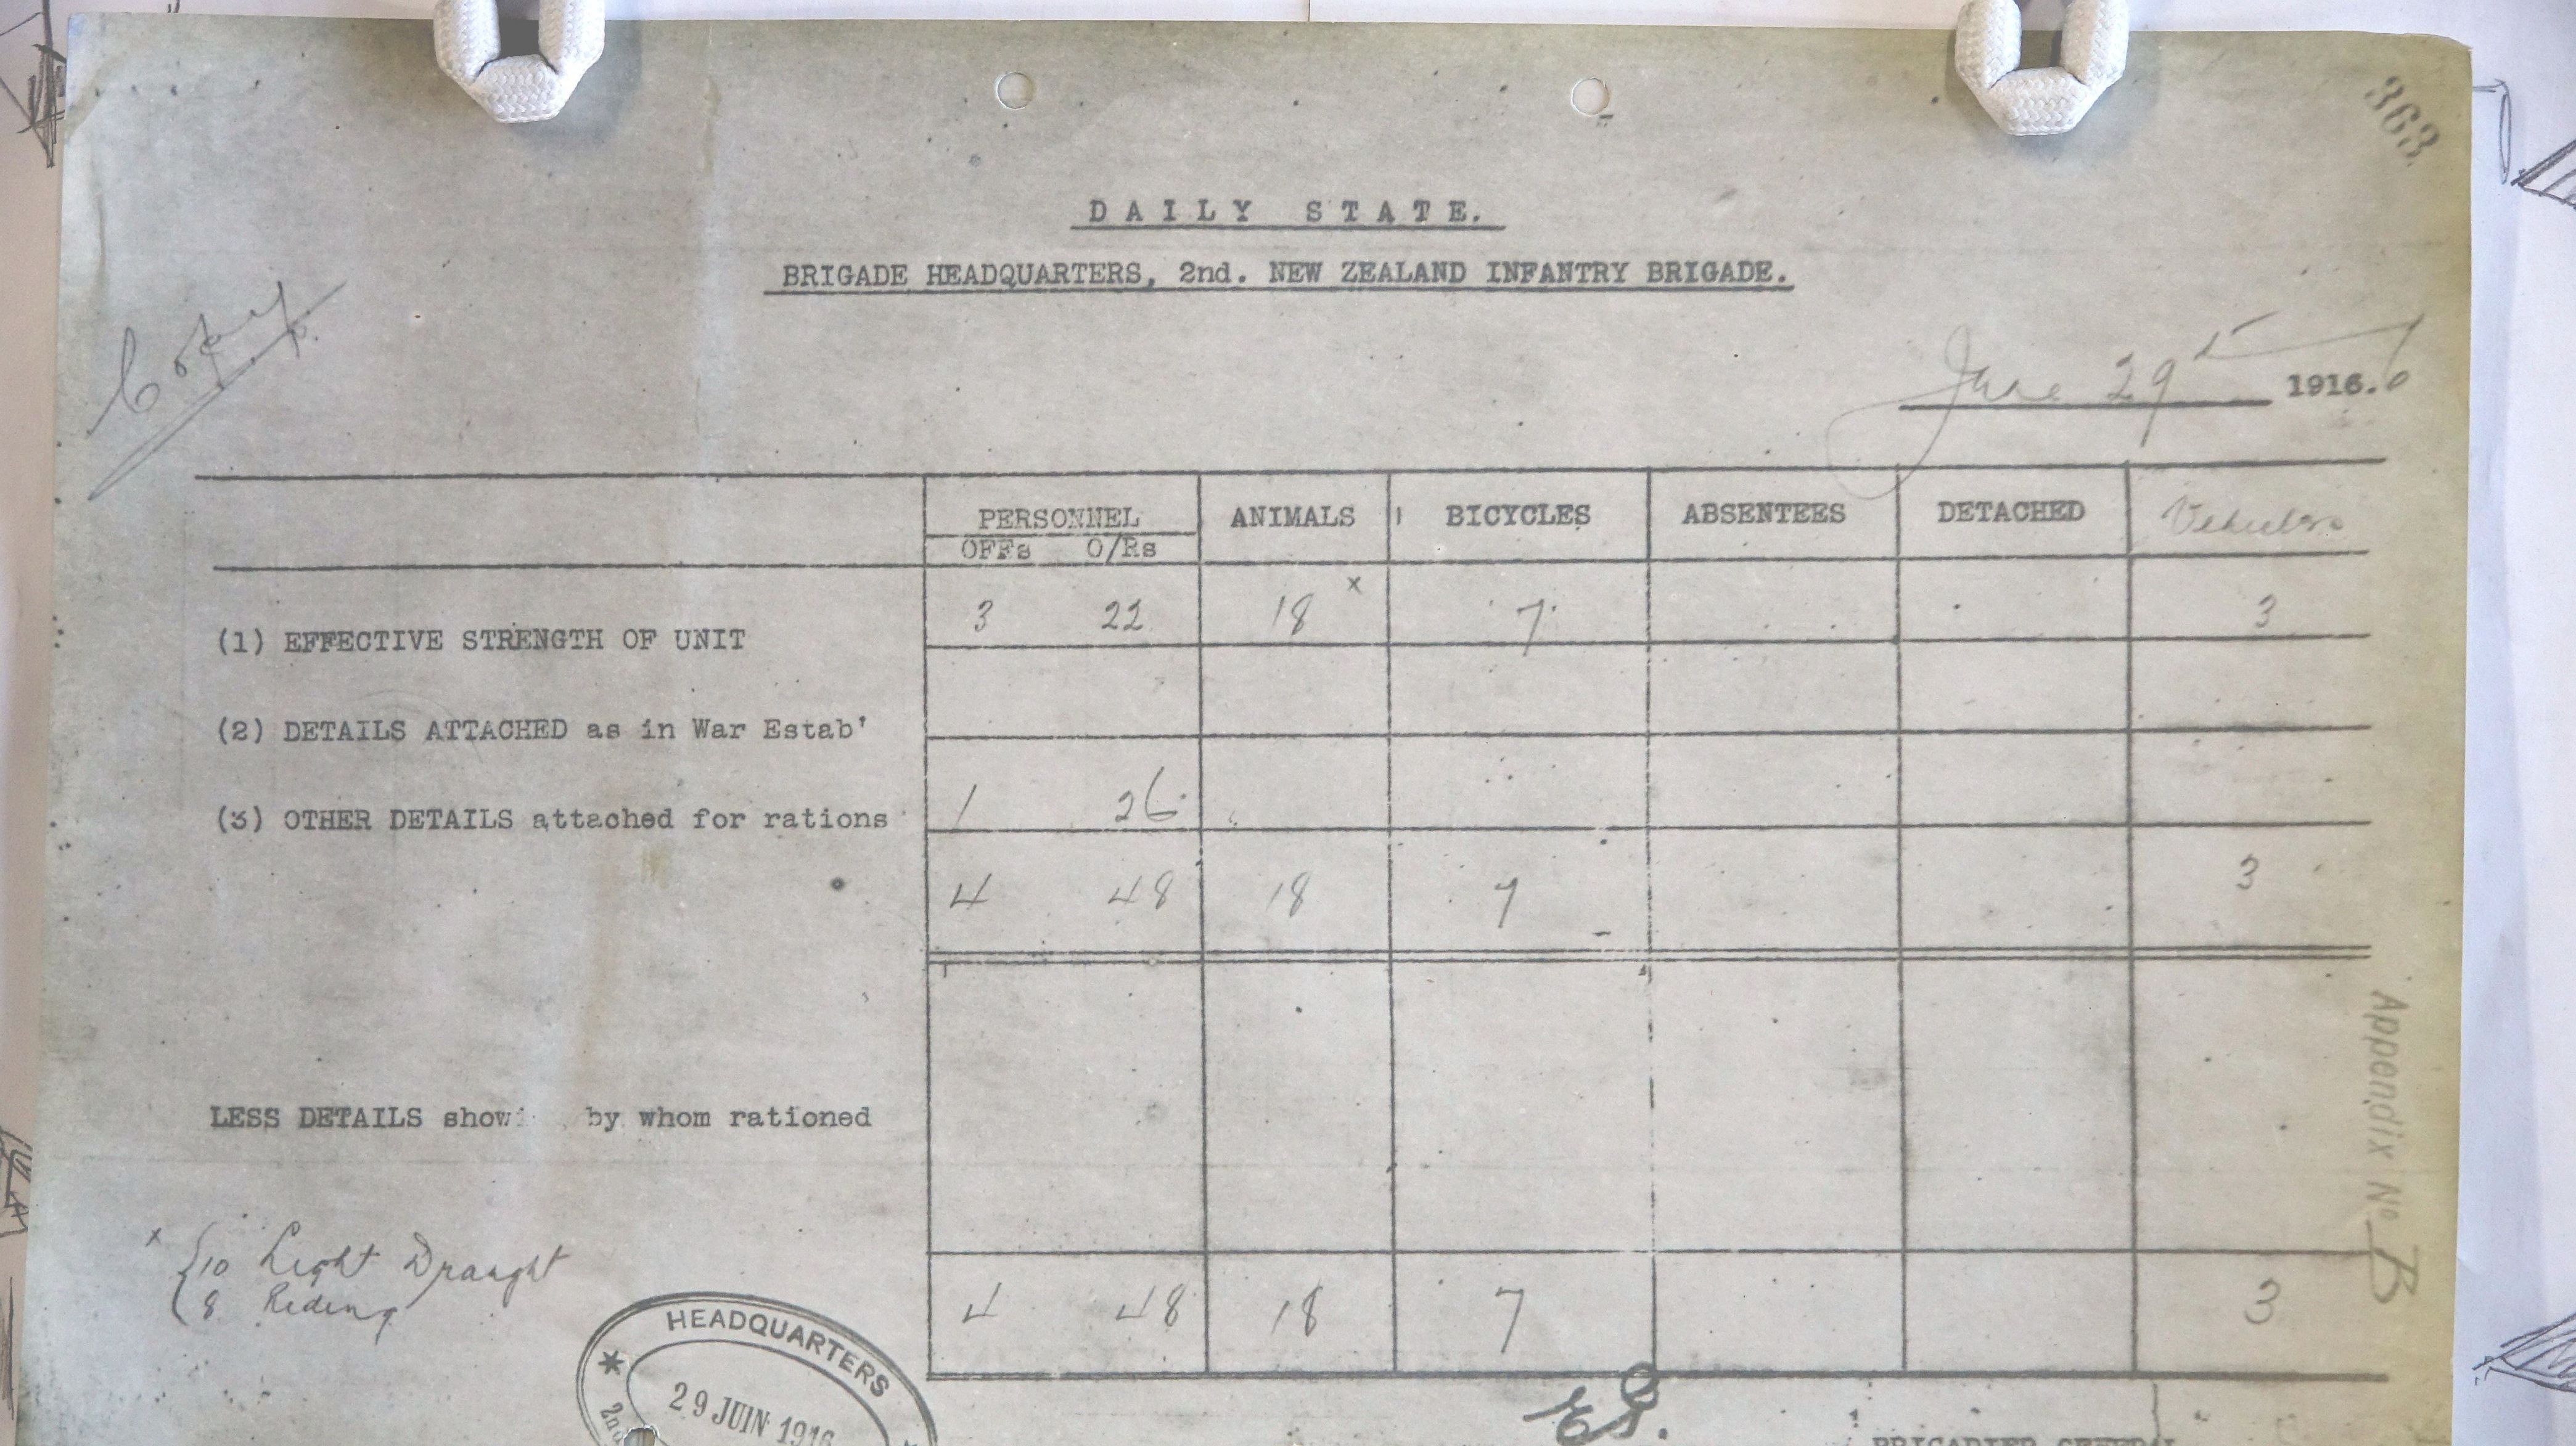 363
DAILY STATE.
BRIGADE HEADQUARTERS, 2nd. NEW ZEALAND INFANTRY BRIGADE.
Copy
June 29th 1916.
PERSONNEL ANIMALS BICYCLES ABSENTEES DETACHED Vehicles
OFFs O/Rs
(1) EFFECTIVE STRENGTH OF UNIT 3 22 18 x 7 3
(2) DETAILS ATTACHED as in War Estab'
(3) OTHER DETAILS attached for rations 1 26
4 48 18 7 3
LESS DETAILS show by whom rationed
x 10 Light Draught
8 Riding
4 48 18 7 3
Appendix No B
HEADQUARTERS
29 JUIN 1916
2nd
BRIGADIER GENERAL